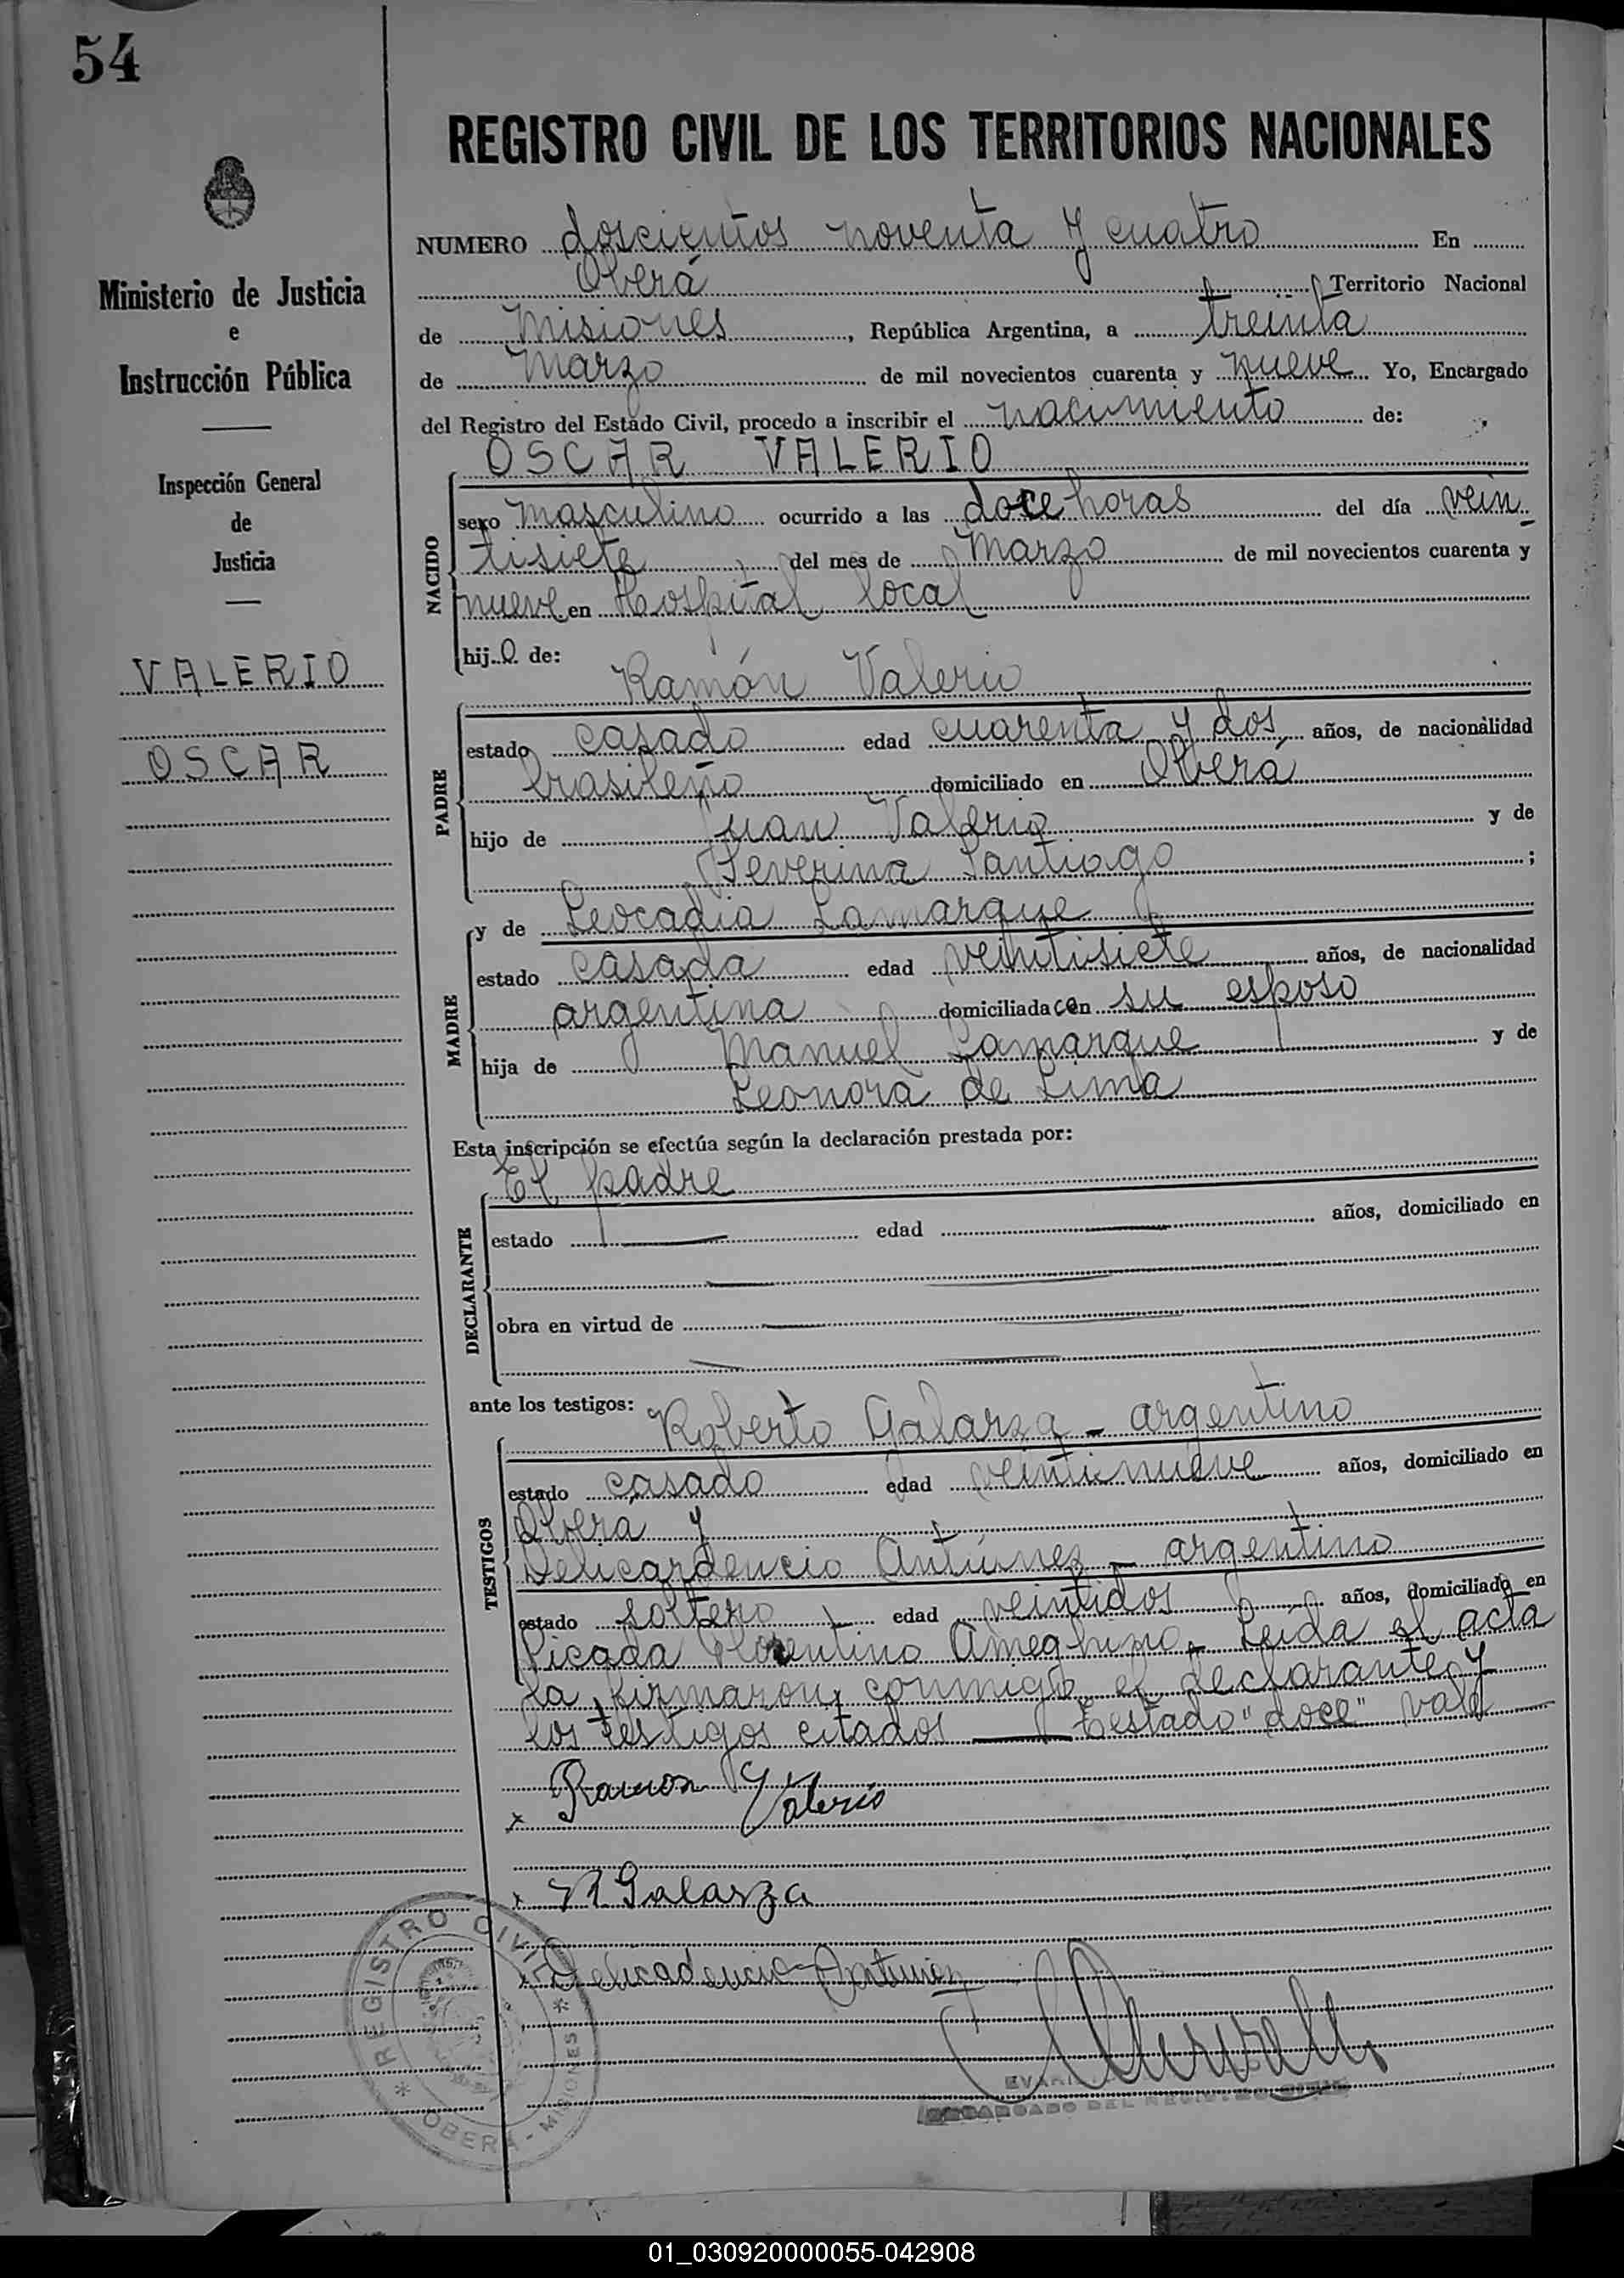 54
REGISTRO CIVIL DE LOS TERRITORIOS NACIONALES
Ministerio de Justicia
e
Instrucción Pública
Inspección General
de
Justicia
VALERIO
OSCAR
NUMERO doscientos noventa y cuatro En
Oberá Territorio Nacional
de Misiones, República Argentina, a treinta
de Marzo de mil novecientos cuarenta y nueve Yo, Encargado
del Registro del Estado Civil, procedo a inscribir el nacimiento de:
OSCAR VALERIO
NACIDO
sexo masculino ocurrido a las doce horas del día vein
tisiete del mes de Marzo de mil novecientos cuarenta y
nueve en Hospital local
hijo de:
Ramón Valerio
PADRE
estado casado edad cuarenta y dos años, de nacionalidad
brasileño domiciliado en Oberá
hijo de Juan Valerio y de
Severina Santiago;
MADRE
y de Leocadia Lamarque
estado casada edad veintisiete años, de nacionalidad
argentina domiciliada con su esposo
hija de Manuel Lamarque y de
Leonora de Lima
Esta inscripción se efectúa según la declaración prestada por:
El padre
DECLARANTE
estado — edad — años, domiciliado en
obra en virtud de —
ante los testigos:
Roberto Galarza - argentino
TESTIGOS
estado casado edad veintinueve años, domiciliado en
Oberá y
Delicardencio Antúnez - argentino
estado soltero edad veintidos años, domiciliado en
Picada Florentino Ameghino. Leída el acta
la firmaron conmigo el declarante y
los testigos citados — Testado "doce" vale —
x Ramon Valerio
x R Galarza
x Delicadencio Antunez
REGISTRO CIVIL
OBERA - MISIONES
ENCARGADO DEL REGISTRO CIVIL
01_030920000055-042908